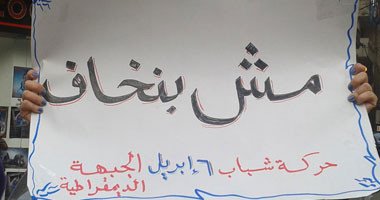 مش بنخاف
حركة شباب ٦ إبريل الجبهة
الديمقراطية